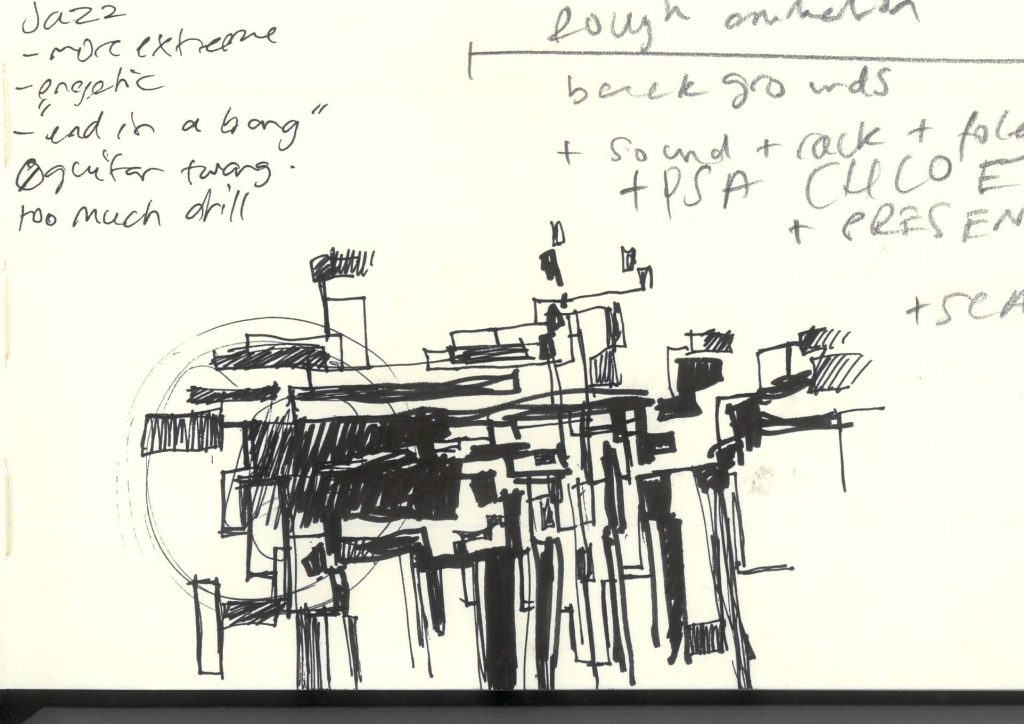 Jazz
- more extreme
- engetic
- "end in a bang"
guitar twang.
too much drill
Rough animation
backgrounds
+ sound + rack + fola
+ PSA
+ PRESEN
+ SCA